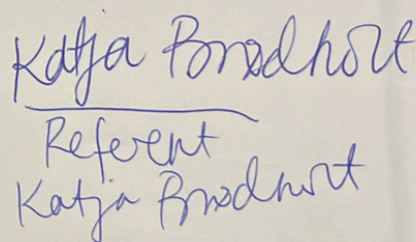 Katja Brødholt
Referent
Katja Brødholt